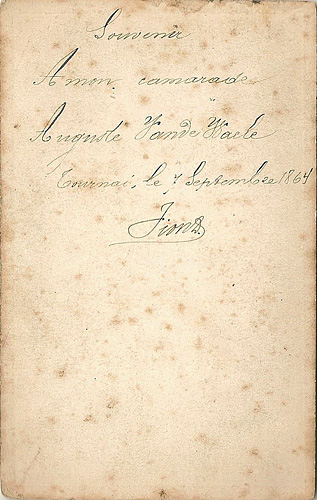 Souvenir
A mon camarade
Auguste Van de Waele
Tournai, le 7 Septembre 1864